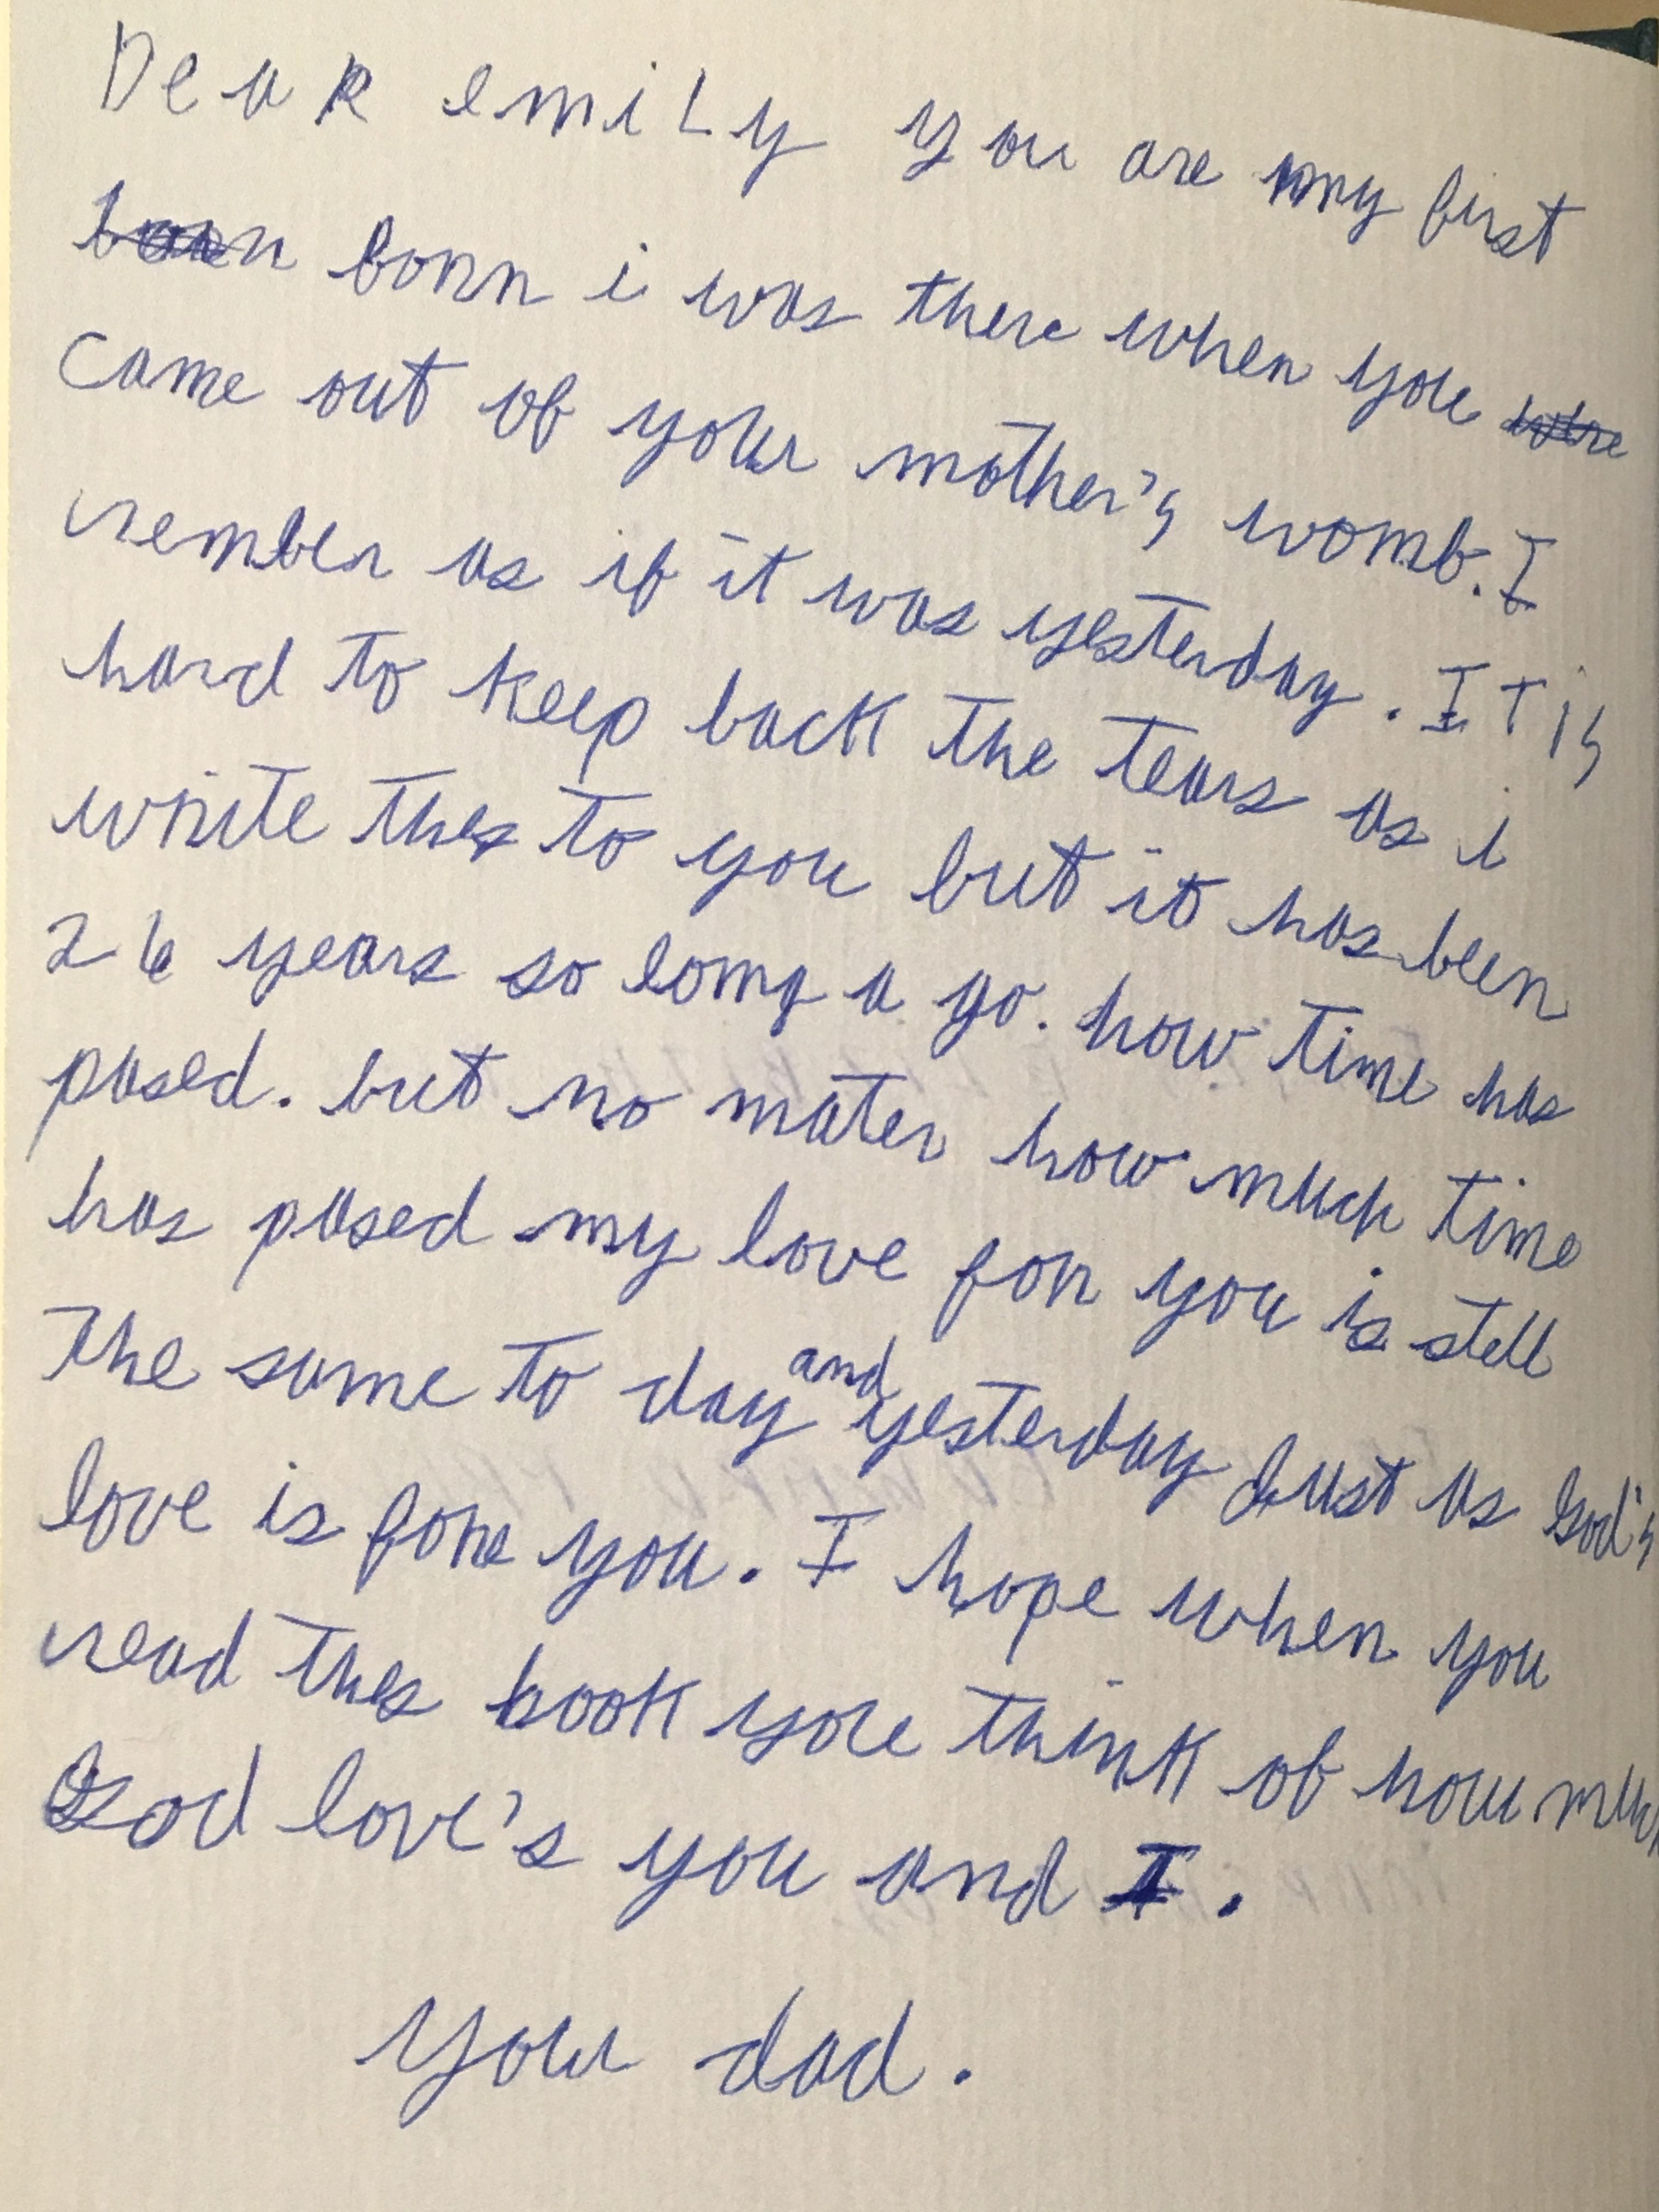 Dear emiLy you are my first
born born i was there when you were
came out of your mother's womb. I
rember as if it was yesterday. IT is
hard to keep back the tears as i
write thes to you but it has been
26 years so long a go. how time has
pased. but no mater how much time
has pased my love for you is stell
The same to day and yesterday Just as God's
love is fore you. I hope when you
read thes book you think of how much
God love's you and I.
your dad.